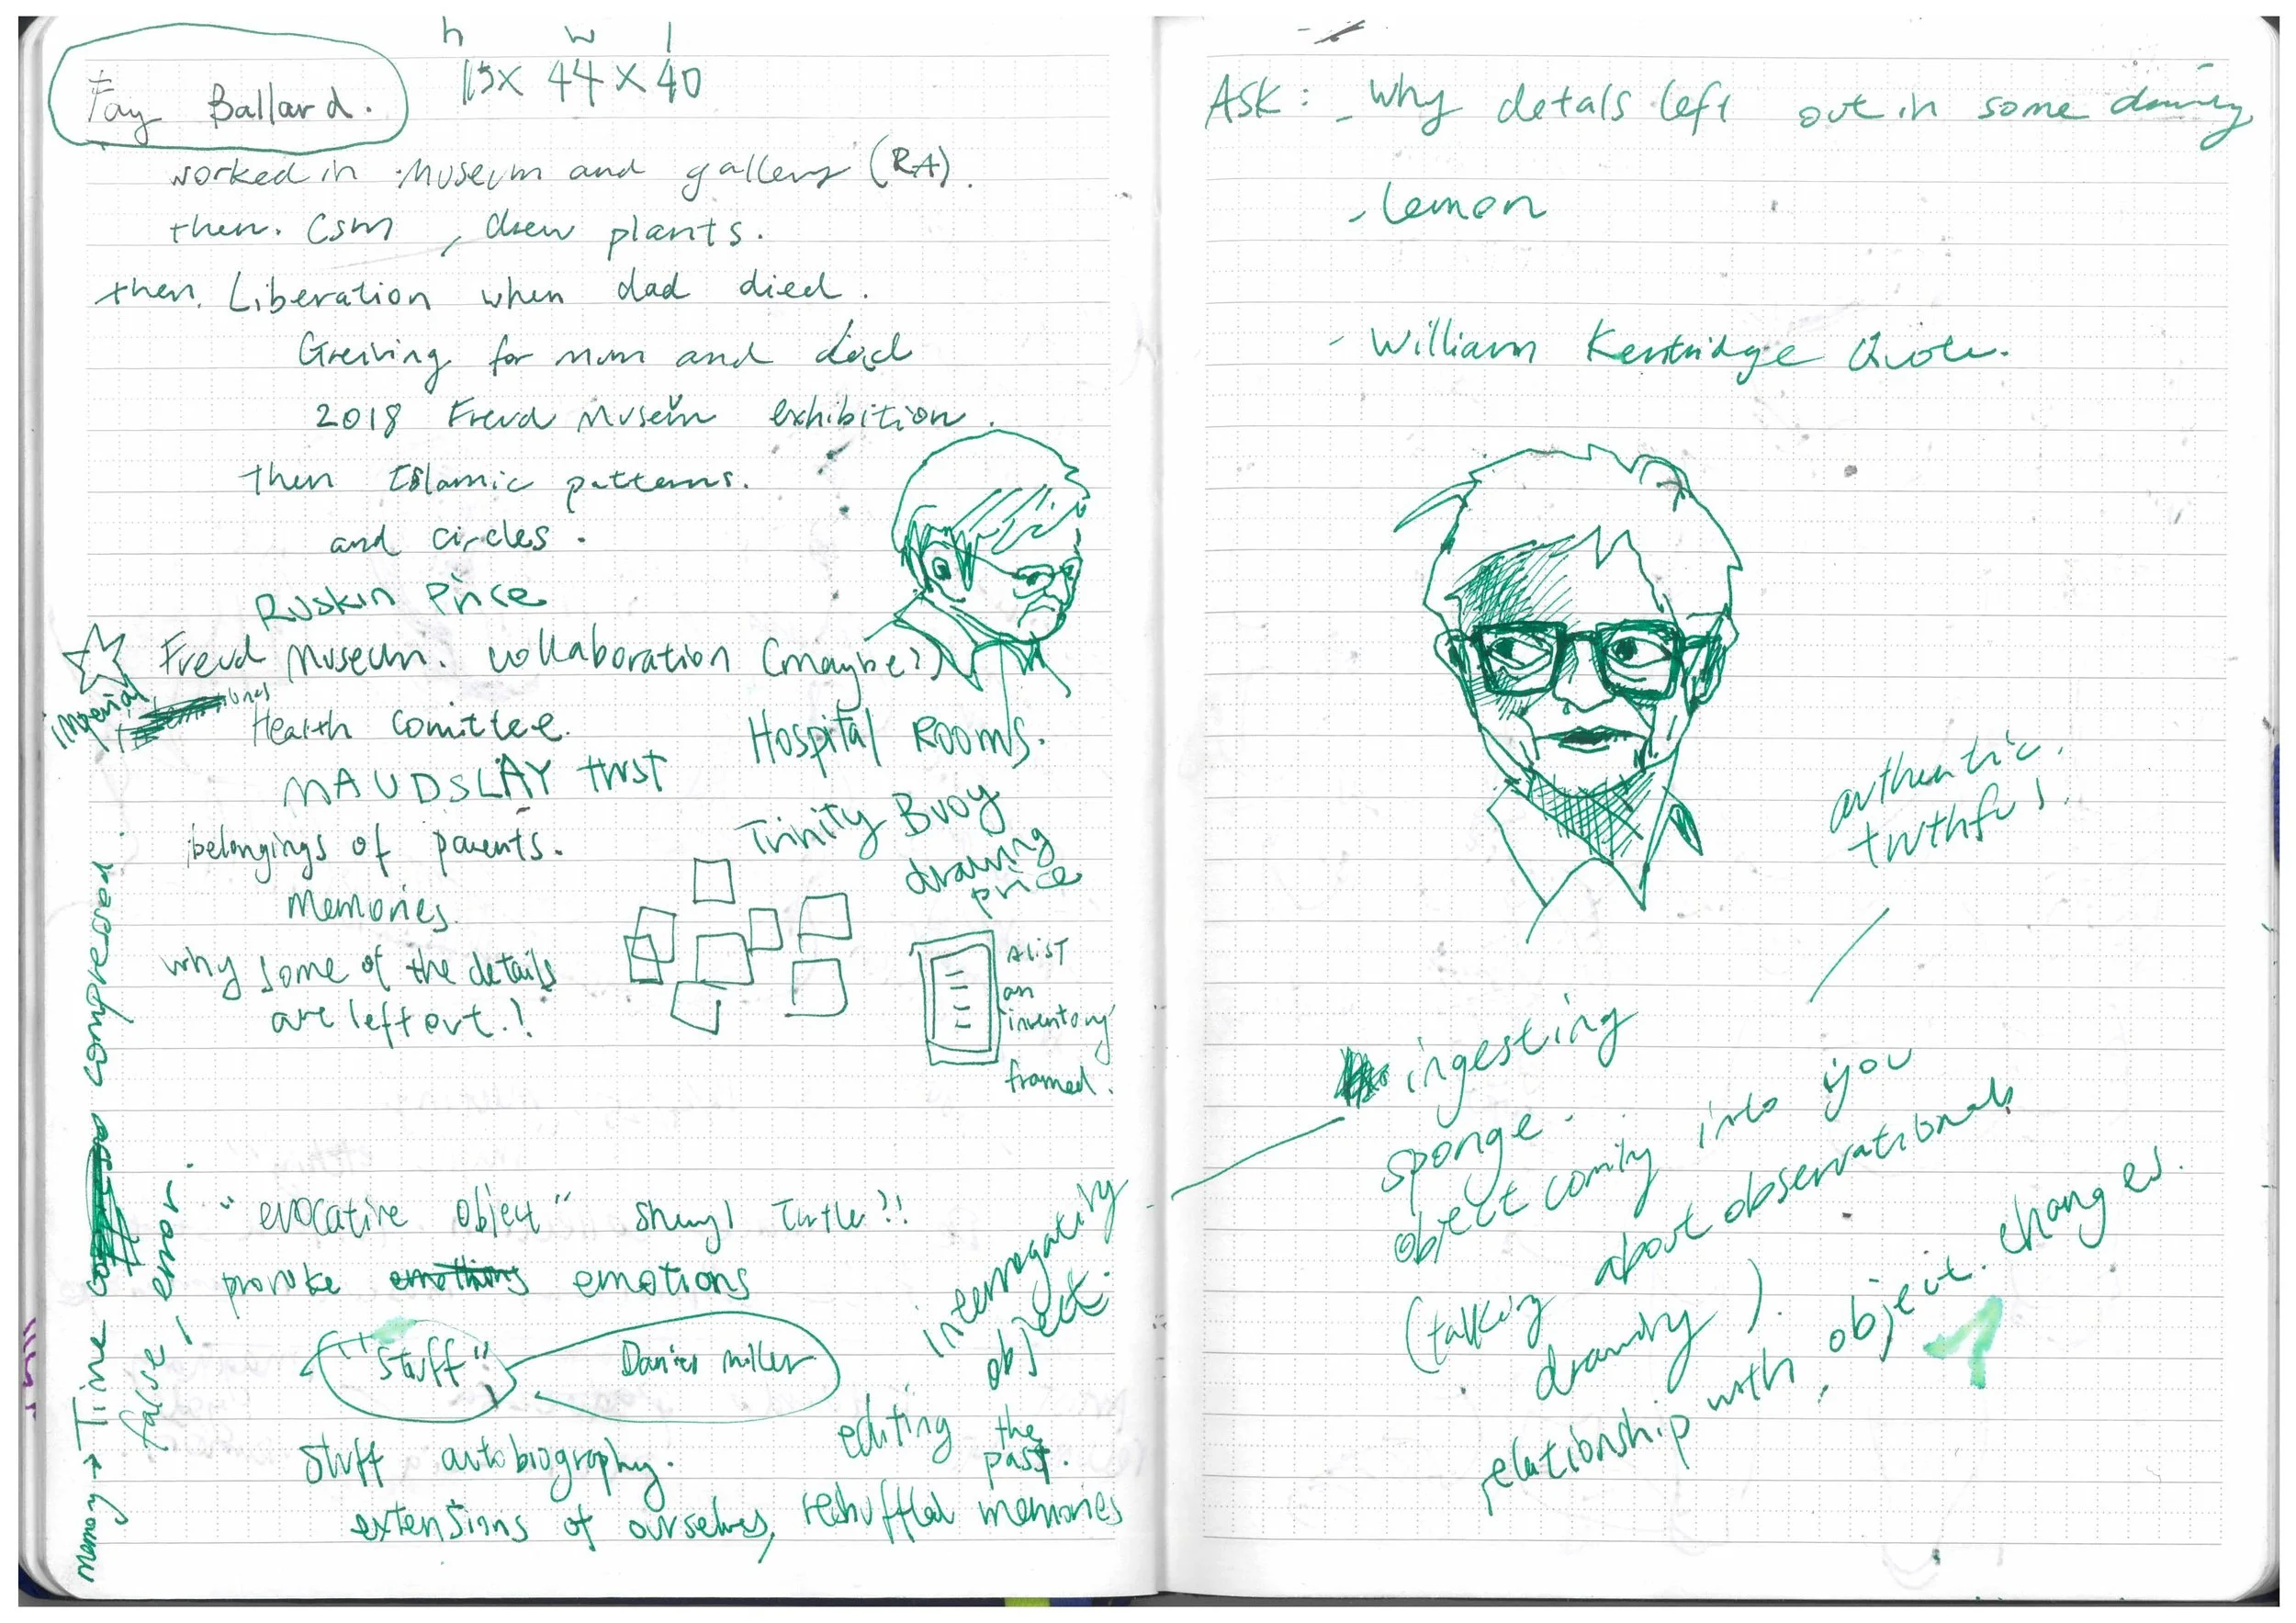 h w l
Fay Ballard. 15x 44 x 40
worked in Museum and gallery (RA).
then. CSM, drew plants.
then. Liberation when dad died.
Greiving for mum and dad
2018 Freud Museum exhibition.
then Islamic patterns.
and circles.
Ruskin Price
Freud Museum. collaboration (maybe?)
imperial
Health comittee.
Hospital Rooms.
MAUDSLAY trust
Trinity Buoy
drawing
price
belongings of parents.
Memories.
why some of the details
are left out.!
A list
an
inventory
framed.
memory → Time compressed.
false, error.
"evocative object" Sheryl Turtle?!
provoke emotions
interrogating
object.
"Stuff" Daniel Miller
editing the
past.
Stuff autobiography.
extensions of ourselves, reshuffled memories
ASK: - Why detals left out in some drawing
- Lemon
- William Kentridge Quote.
authentic.
truthful.
ingesting
sponge.
object coming into you
(talking about observational
drawing).
relationship with, object. changes.